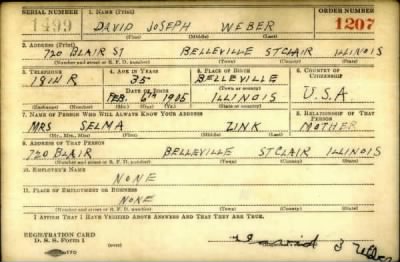 SERIAL NUMBER 1. NAME (Print) ORDER NUMBER
1499 DAVID JOSEPH WEBER 1207
(First) (Middle) (Last)
2. ADDRESS (Print)
720 BLAIR ST BELLEVILLE ST CLAIR ILLINOIS
(Number and street or R. F. D. number) (Town) (County) (State)
3. TELEPHONE 4. AGE IN YEARS 5. PLACE OF BIRTH 6. COUNTRY OF CITIZENSHIP
35 BELLEVILLE
DATE OF BIRTH (Town or county)
FEB. 6TH 1905 ILLINOIS U.S.A
(Exchange) (Number) (Mo.) (Day) (Yr.) (State or country)
7. NAME OF PERSON WHO WILL ALWAYS KNOW YOUR ADDRESS 8. RELATIONSHIP OF THAT PERSON
MRS SELMA LINK MOTHER
(Mr., Mrs., Miss) (First) (Middle) (Last)
9. ADDRESS OF THAT PERSON
720 BLAIR BELLEVILLE ST CLAIR ILLINOIS
(Number and street or R. F. D. number) (Town) (County) (State)
10. EMPLOYER'S NAME
NONE
11. PLACE OF EMPLOYMENT OR BUSINESS
NONE
(Number and street or R. F. D. number) (Town) (County) (State)
I AFFIRM THAT I HAVE VERIFIED ABOVE ANSWERS AND THAT THEY ARE TRUE.
REGISTRATION CARD
D. S. S. Form 1
David J Weber